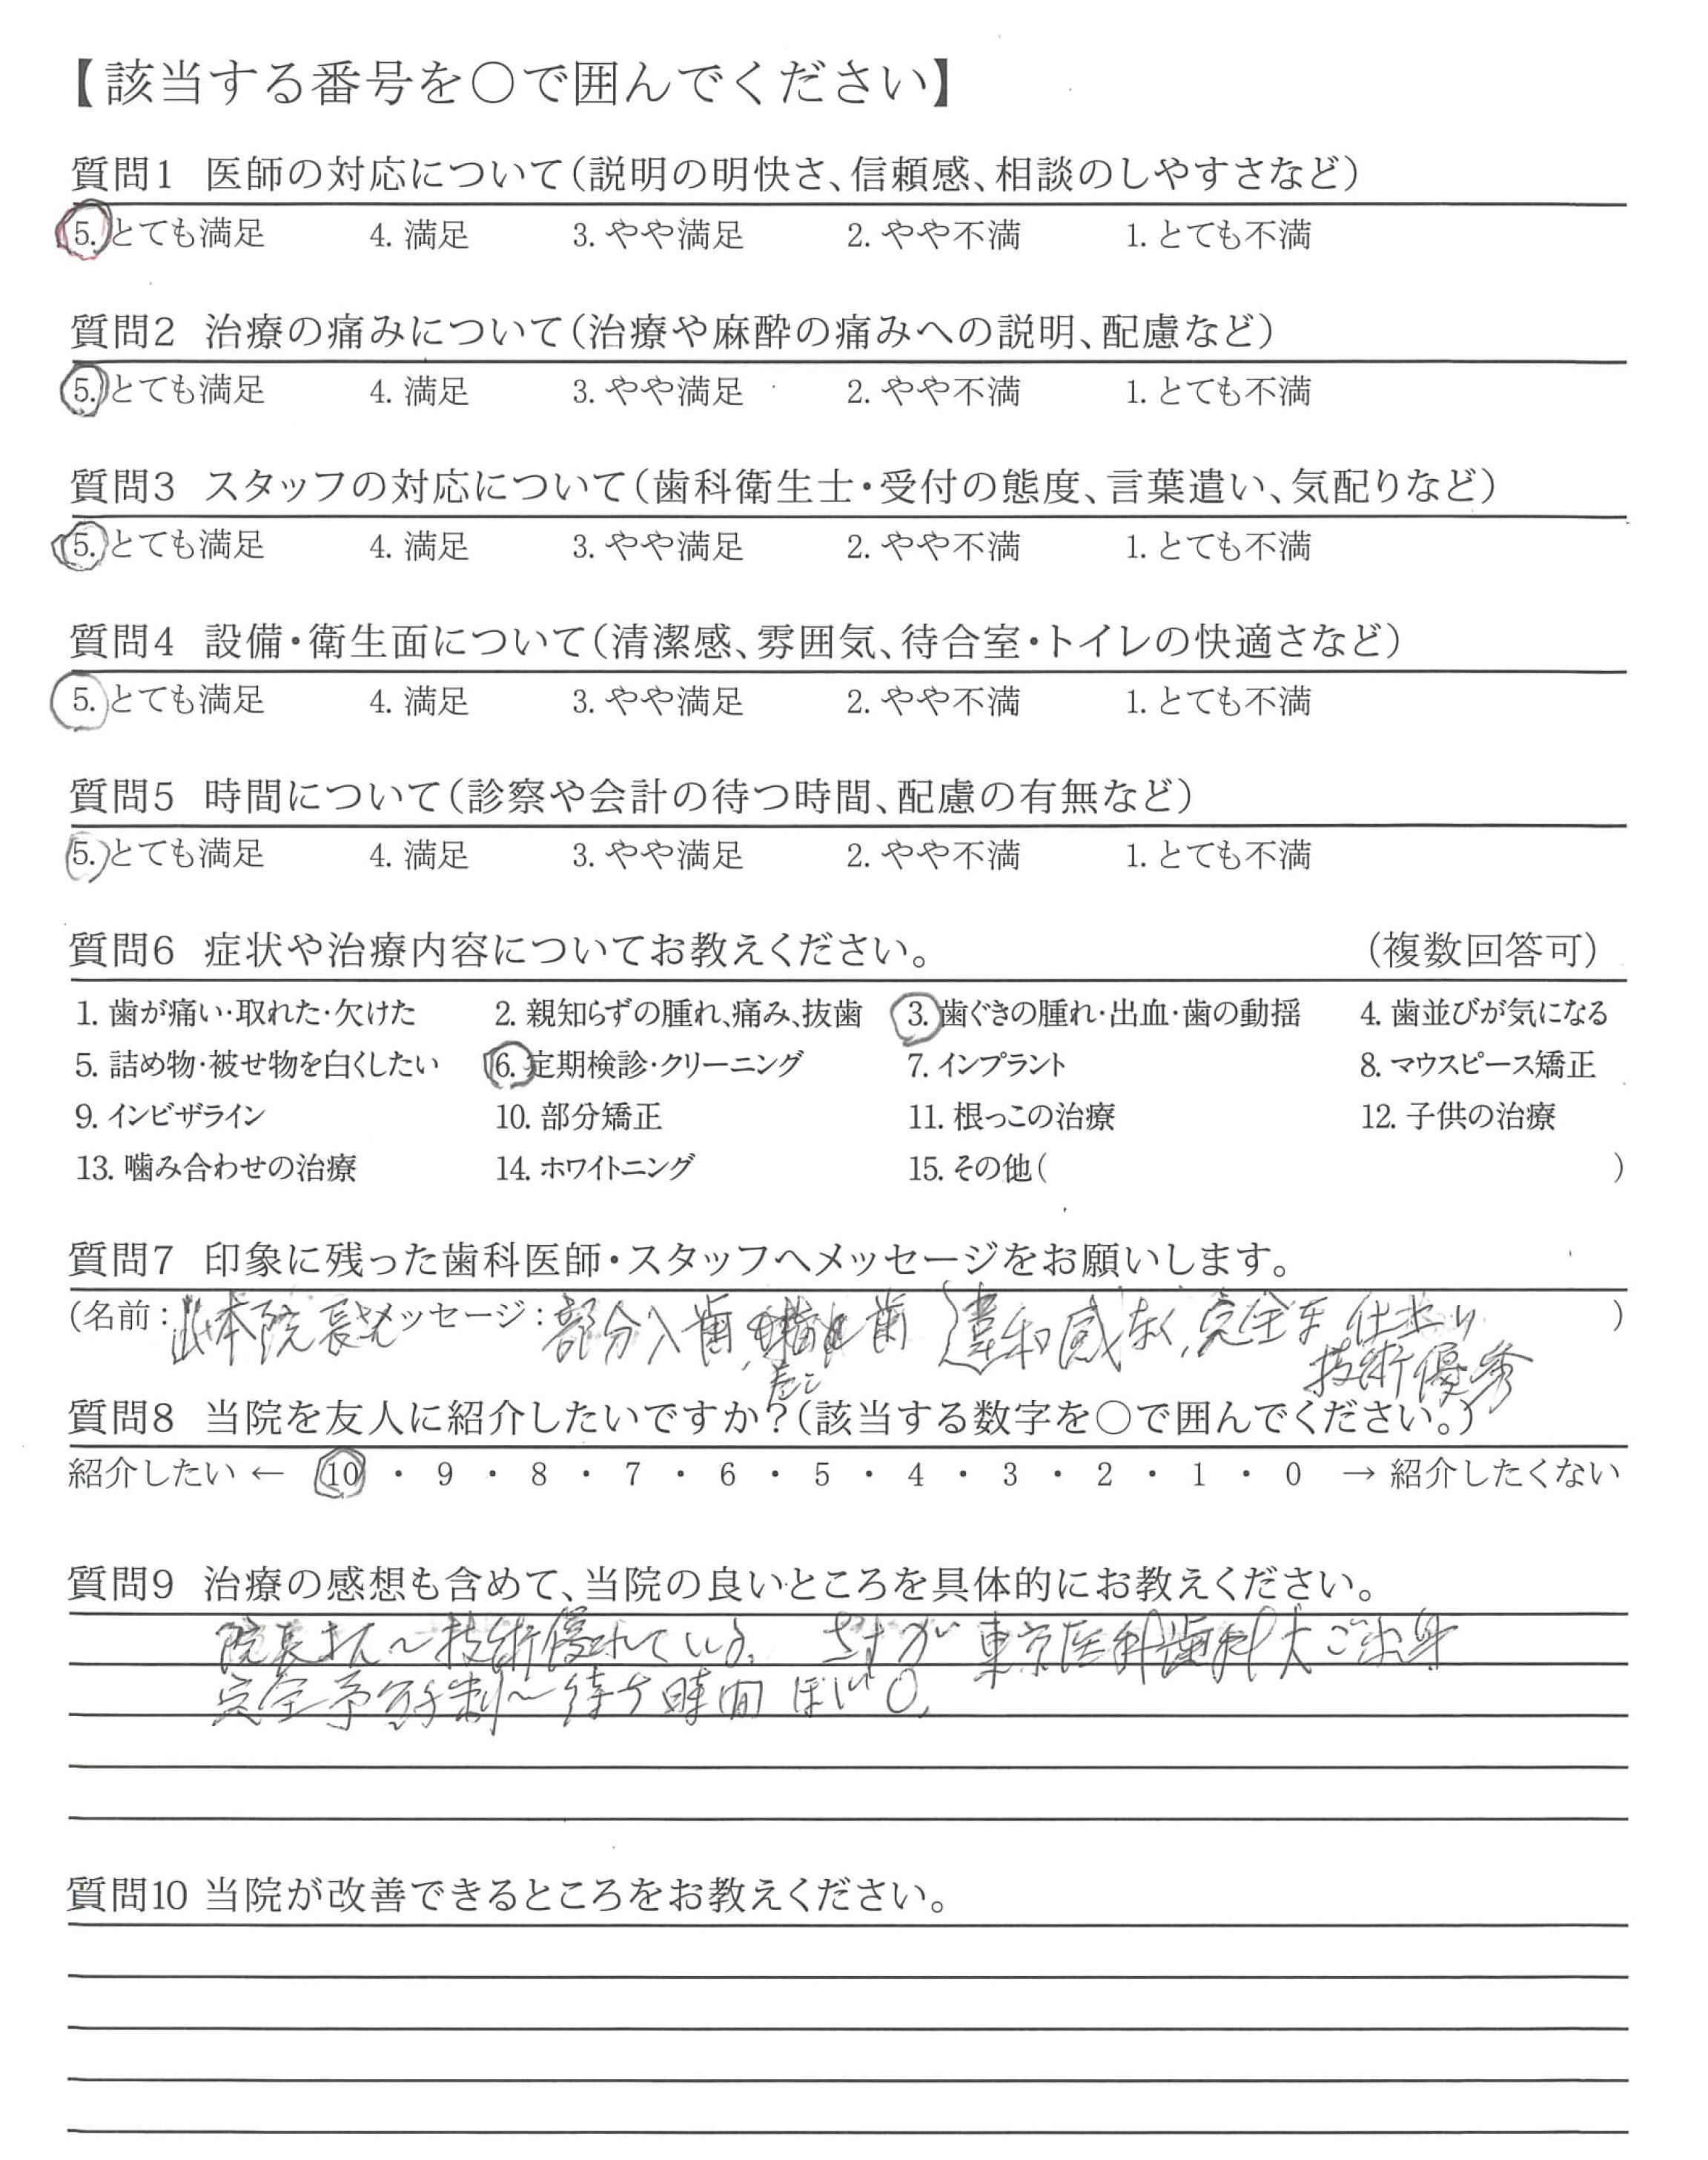 【該当する番号を〇で囲んでください】
質問1 医師の対応について(説明の明快さ、信頼感、相談のしやすさなど)
5. とても満足 4. 満足 3. やや満足 2. やや不満 1. とても不満
質問2 治療の痛みについて(治療や麻酔の痛みへの説明、配慮など)
5. とても満足 4. 満足 3. やや満足 2. やや不満 1. とても不満
質問3 スタッフの対応について(歯科衛生士・受付の態度、言葉遣い、気配りなど)
5. とても満足 4. 満足 3. やや満足 2. やや不満 1. とても不満
質問4 設備・衛生面について(清潔感、雰囲気、待合室・トイレの快適さなど)
5. とても満足 4. 満足 3. やや満足 2. やや不満 1. とても不満
質問5 時間について(診察や会計の待つ時間、配慮の有無など)
5. とても満足 4. 満足 3. やや満足 2. やや不満 1. とても不満
質問6 症状や治療内容についてお教えください。 (複数回答可)
1. 歯が痛い・取れた・欠けた 2. 親知らずの腫れ、痛み、抜歯 3. 歯ぐきの腫れ・出血・歯の動揺 4. 歯並びが気になる
5. 詰め物・被せ物を白くしたい 6. 定期検診・クリーニング 7. インプラント 8. マウスピース矯正
9. インビザライン 10. 部分矯正 11. 根っこの治療 12. 子供の治療
13. 噛み合わせの治療 14. ホワイトニング 15. その他( )
質問7 印象に残った歯科医師・スタッフへメッセージをお願いします。
(名前: 山本院長 メッセージ: 部分入歯 歯 違和感なく、完全な仕上り )
技術優秀
質問8 当院を友人に紹介したいですか?(該当する数字を〇で囲んでください。)
紹介したい ← 10 ・ 9 ・ 8 ・ 7 ・ 6 ・ 5 ・ 4 ・ 3 ・ 2 ・ 1 ・ 0 → 紹介したくない
質問9 治療の感想も含めて、当院の良いところを具体的にお教えください。
院長さん～技術優れている。さすが東京医科歯科大ご出身
完全予約制～待ち時間ほぼ0。
質問10 当院が改善できるところをお教えください。